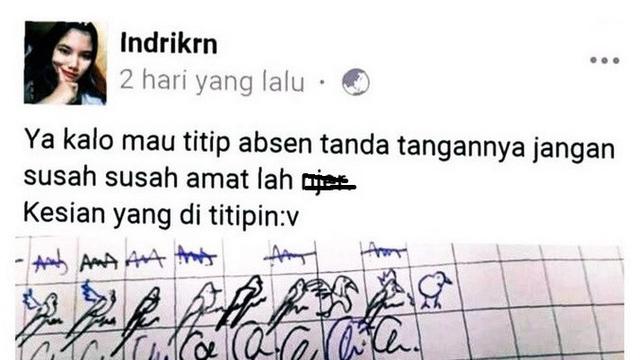 Indrikrn
2 hari yang lalu
Ya kalo mau titip absen tanda tangannya jangan
susah susah amat lah
Kesian yang di titipin:v